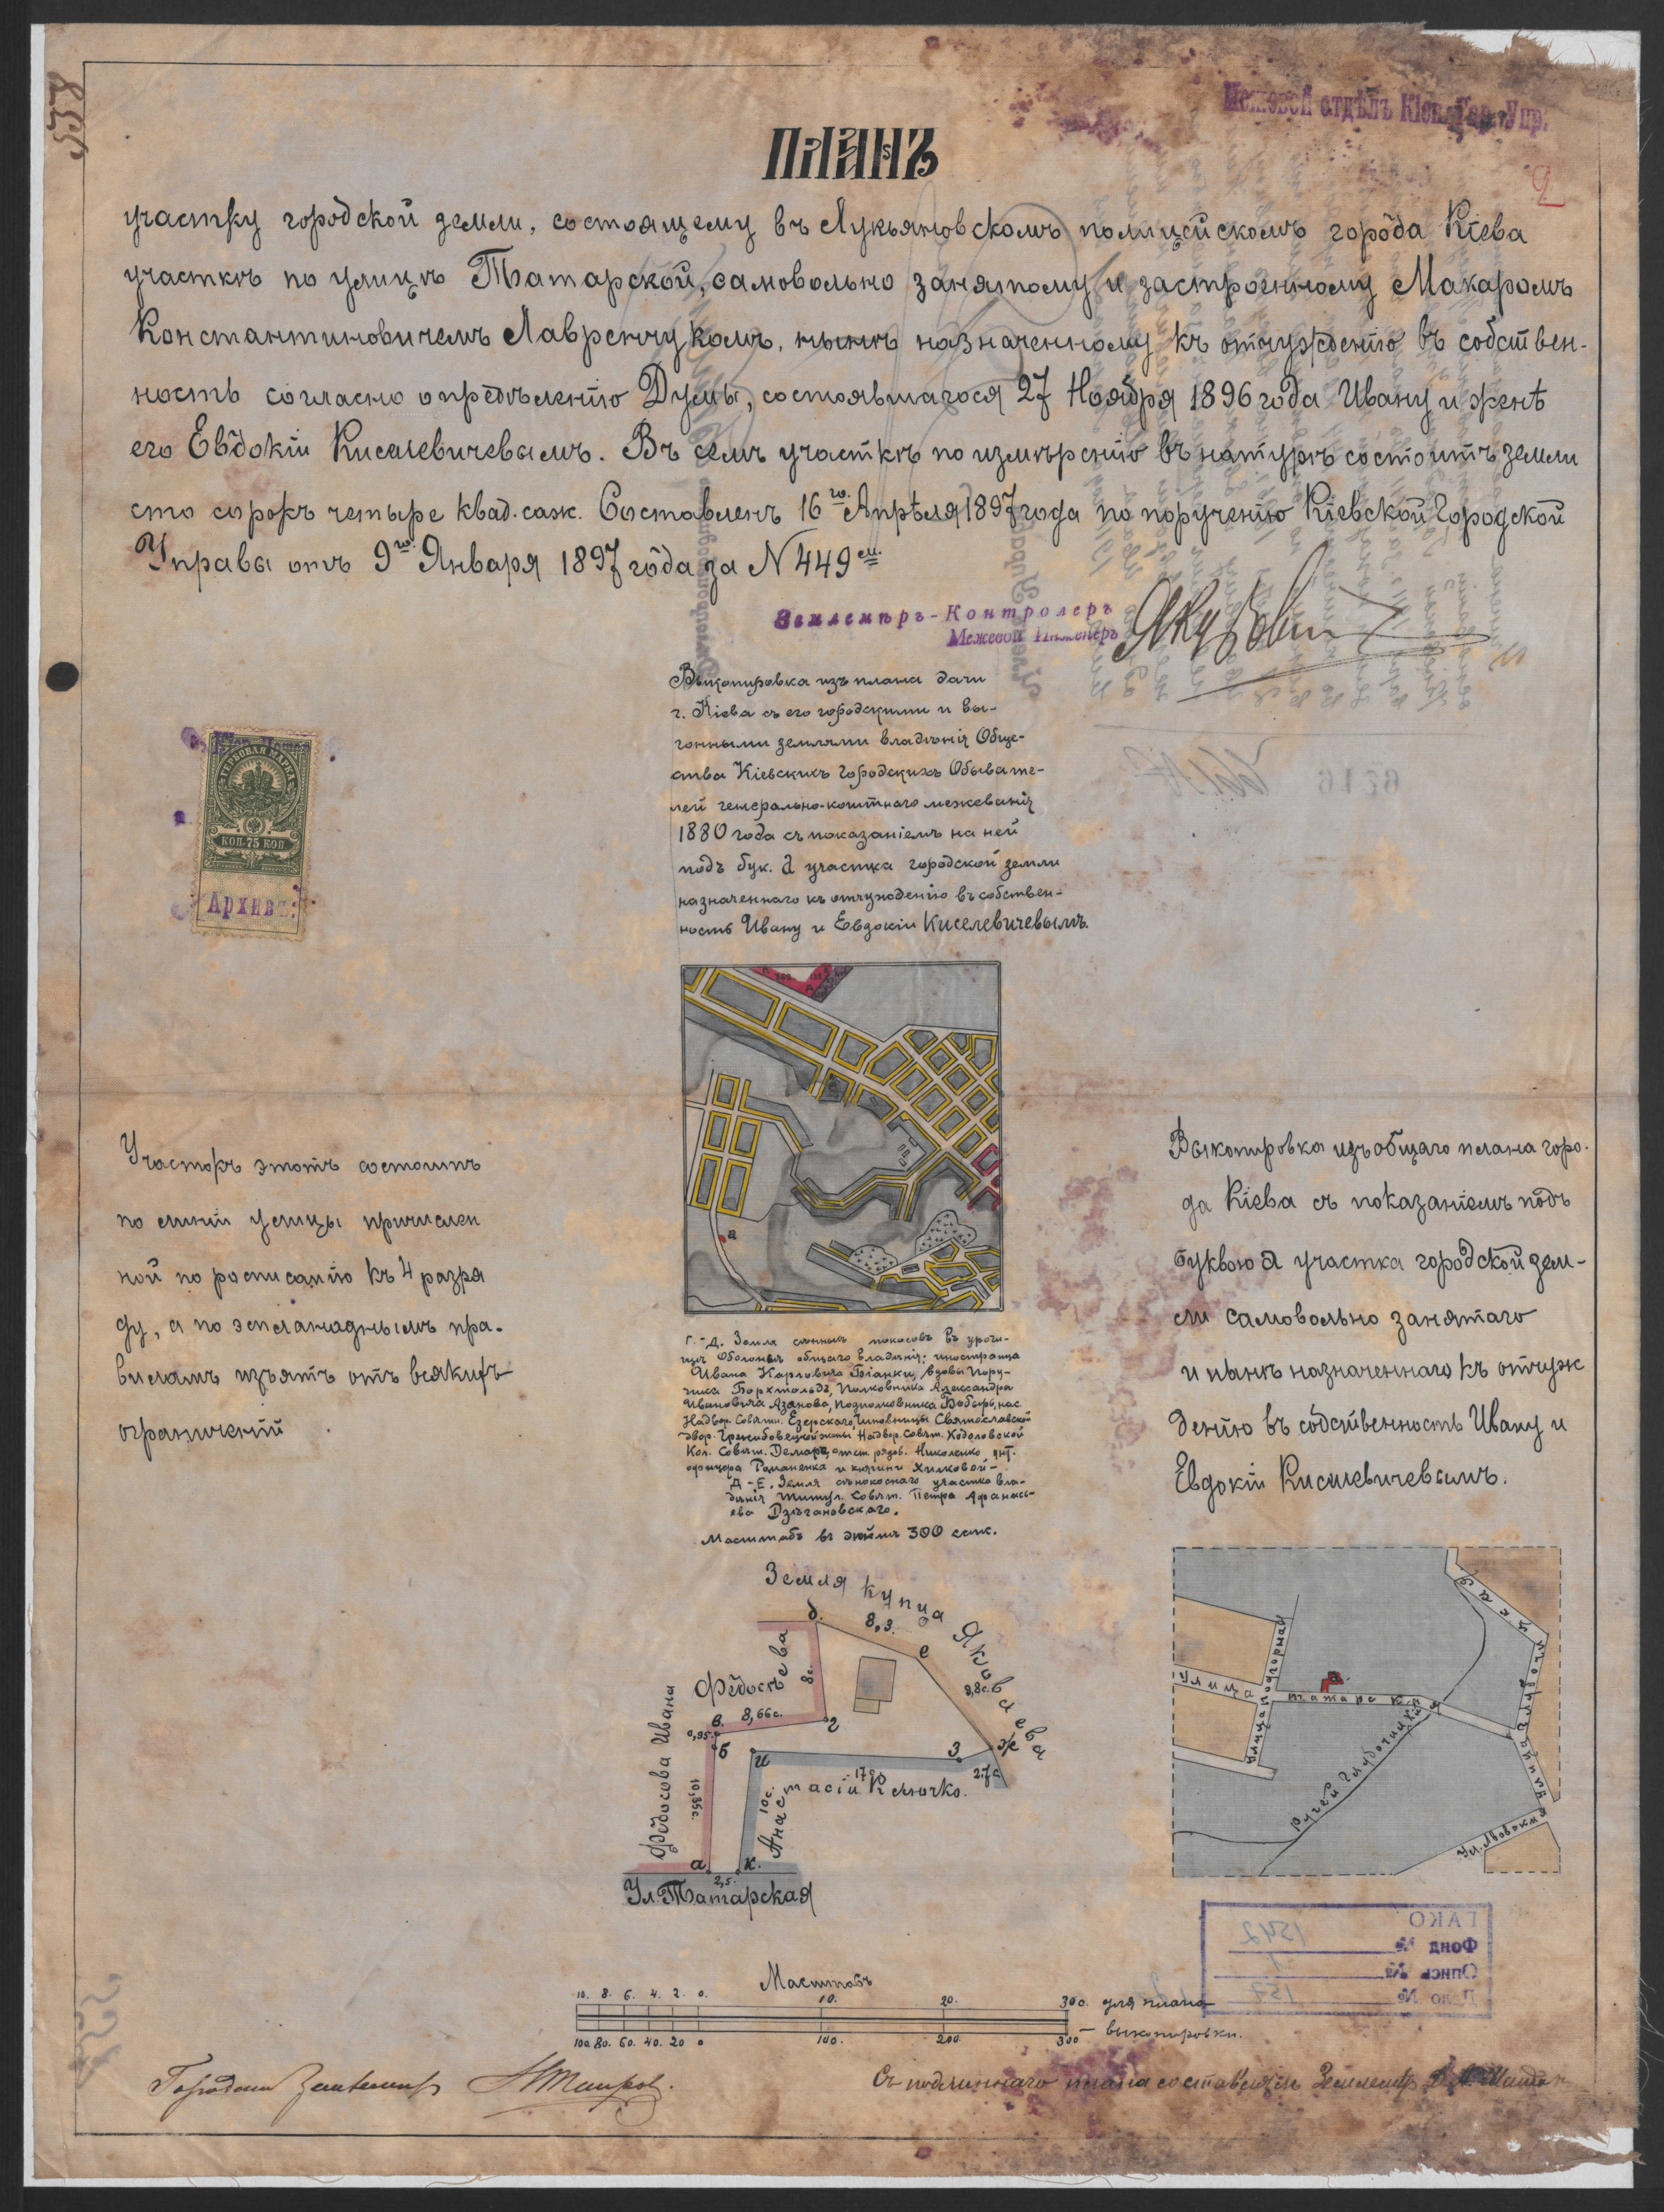 558
Межевой отдѣлъ Кіев. Гор. Упр.
2
ПЛАНЪ
участку городской земли, состоящему въ Лукьяновскомъ полицейскомъ города Кіева
участкѣ по улицѣ Татарской, самовольно занятому и застроенному Макаромъ
Константиновичемъ Лавренчукомъ, нынѣ назначенному къ отчужденію въ собствен-
ность согласно опредѣленію Думы, состоявшагося 27 Ноября 1896 года Ивану и женѣ
его Евдокіи Киселевичевымъ. Въ семъ участкѣ по измѣренію въ натурѣ состоитъ земли
сто сорокъ четыре квад. саж. Составленъ 16го Апрѣля 1897 года по порученію Кіевской Городской
Управы отъ 9го Января 1897 года за N 449ем.
Землемѣръ-Контролеръ
Межевой Инженеръ
Якубович
Выкопировка изъ плана дачи
г. Кіева съ его городскими и вы-
гонными землями владѣнія Обще-
ства Кіевскихъ Городскихъ Обывате-
лей генерально-коштнаго межеванія
1880 года съ показаніемъ на ней
подъ бук. а участка городской земли
назначеннаго къ отчужденію въ собствен-
ность Ивану и Евдокіи Киселевичевымъ.
ГЕРБОВАЯ МАРКА
КОП. 75 КОП.
Архивъ
а
Участокъ этотъ состоитъ
по линіи улицы причислен
ной по росписанію къ 4 разря
ду, а по эспланаднымъ пра-
виламъ изъятъ отъ всякихъ
ограниченій
Выкопировка изъ общаго плана горо-
да Кіева съ показаніемъ подъ
буквою а участка городской зем-
ли самовольно занятаго
и нынѣ назначеннаго къ отчуж
денію въ собственность Ивану и
Евдокіи Киселевичевымъ.
Г.-Д. Земля сѣнныхъ покосовъ въ урочи-
щѣ Оболонье общаго владѣнія: иностранца
Ивана Карловича Біанки, вдовы Пору-
чика Борхтольдъ, Полковника Александра
Ивановича Азанова, Подполковника Бобырь, нас.
Надвор. Совѣтн. Езерскаго, чиновницы Святославской
двор. Гржибовецкой жены Надвор. Совѣт. Ходоловской
Кол. Совѣт. Демаръ, отст. рядов. Николаико унт.
офицера Романенка и княгини Хилковой-
Д-Е. Земля сѣнокоснаго участка вла-
дѣнія Титул. Совѣт. Петра Афанась-
ева Дзѣгановскаго.
Масштабъ въ дюймѣ 300 саж.
Земля купца Яковлева
д.
8,3.
е
9,8с.
Федосѣева
8с.
8,66с.
в.
г
0,95.
б
и
з
ж
17с.
2.7с
Федосова Ивана
10,35с.
10с.
Анастасіи Ключко.
а
к.
2,5.
Ул. Татарская
Улица
татарская
улица подгорная
а
ручей Глубочицкій
Ул. Львовская
ГАКО
Фонд № 1542
Опись № 1
Дело № 157
Масштабъ
10. 8. 6. 4. 2. 0. 10. 20. 30 с. для плана
100 80. 60. 40. 20 0 100. 200 300 - выкопировки.
Городской Землемѣръ Н Таировъ.
Съ подлиннаго плана составлялъ Землемѣръ